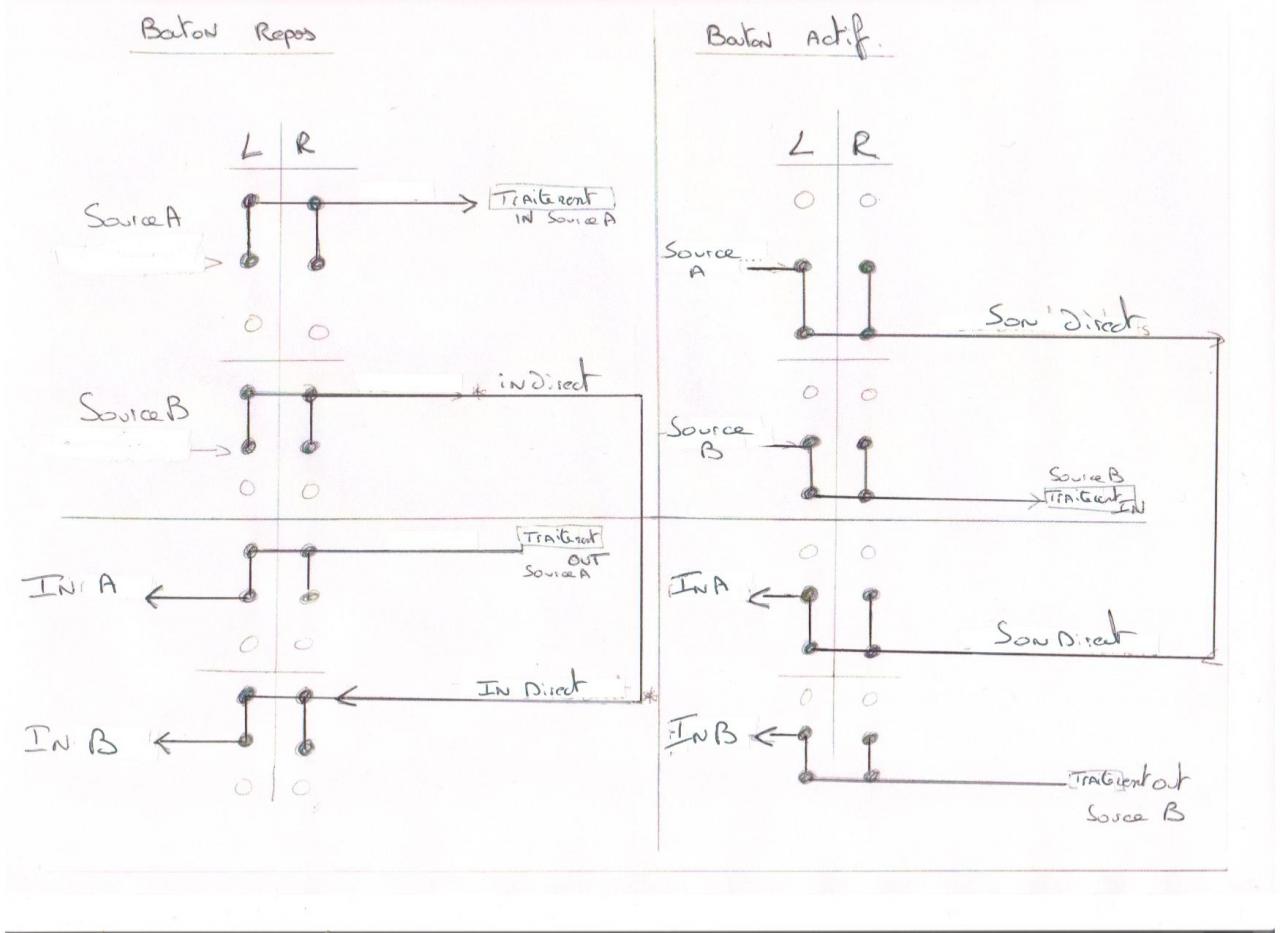 Bouton Repos
L R
Source A
Traitement
IN Source A
Source B
inDirect
Traitement
OUT
Source A
IN A
IN Direct
IN B
Bouton Actif.
L R
Source....
A
Son Direct
Source
B
Source B
Traitement
IN
IN A
Son Direct
IN B
Traitement out
Source B